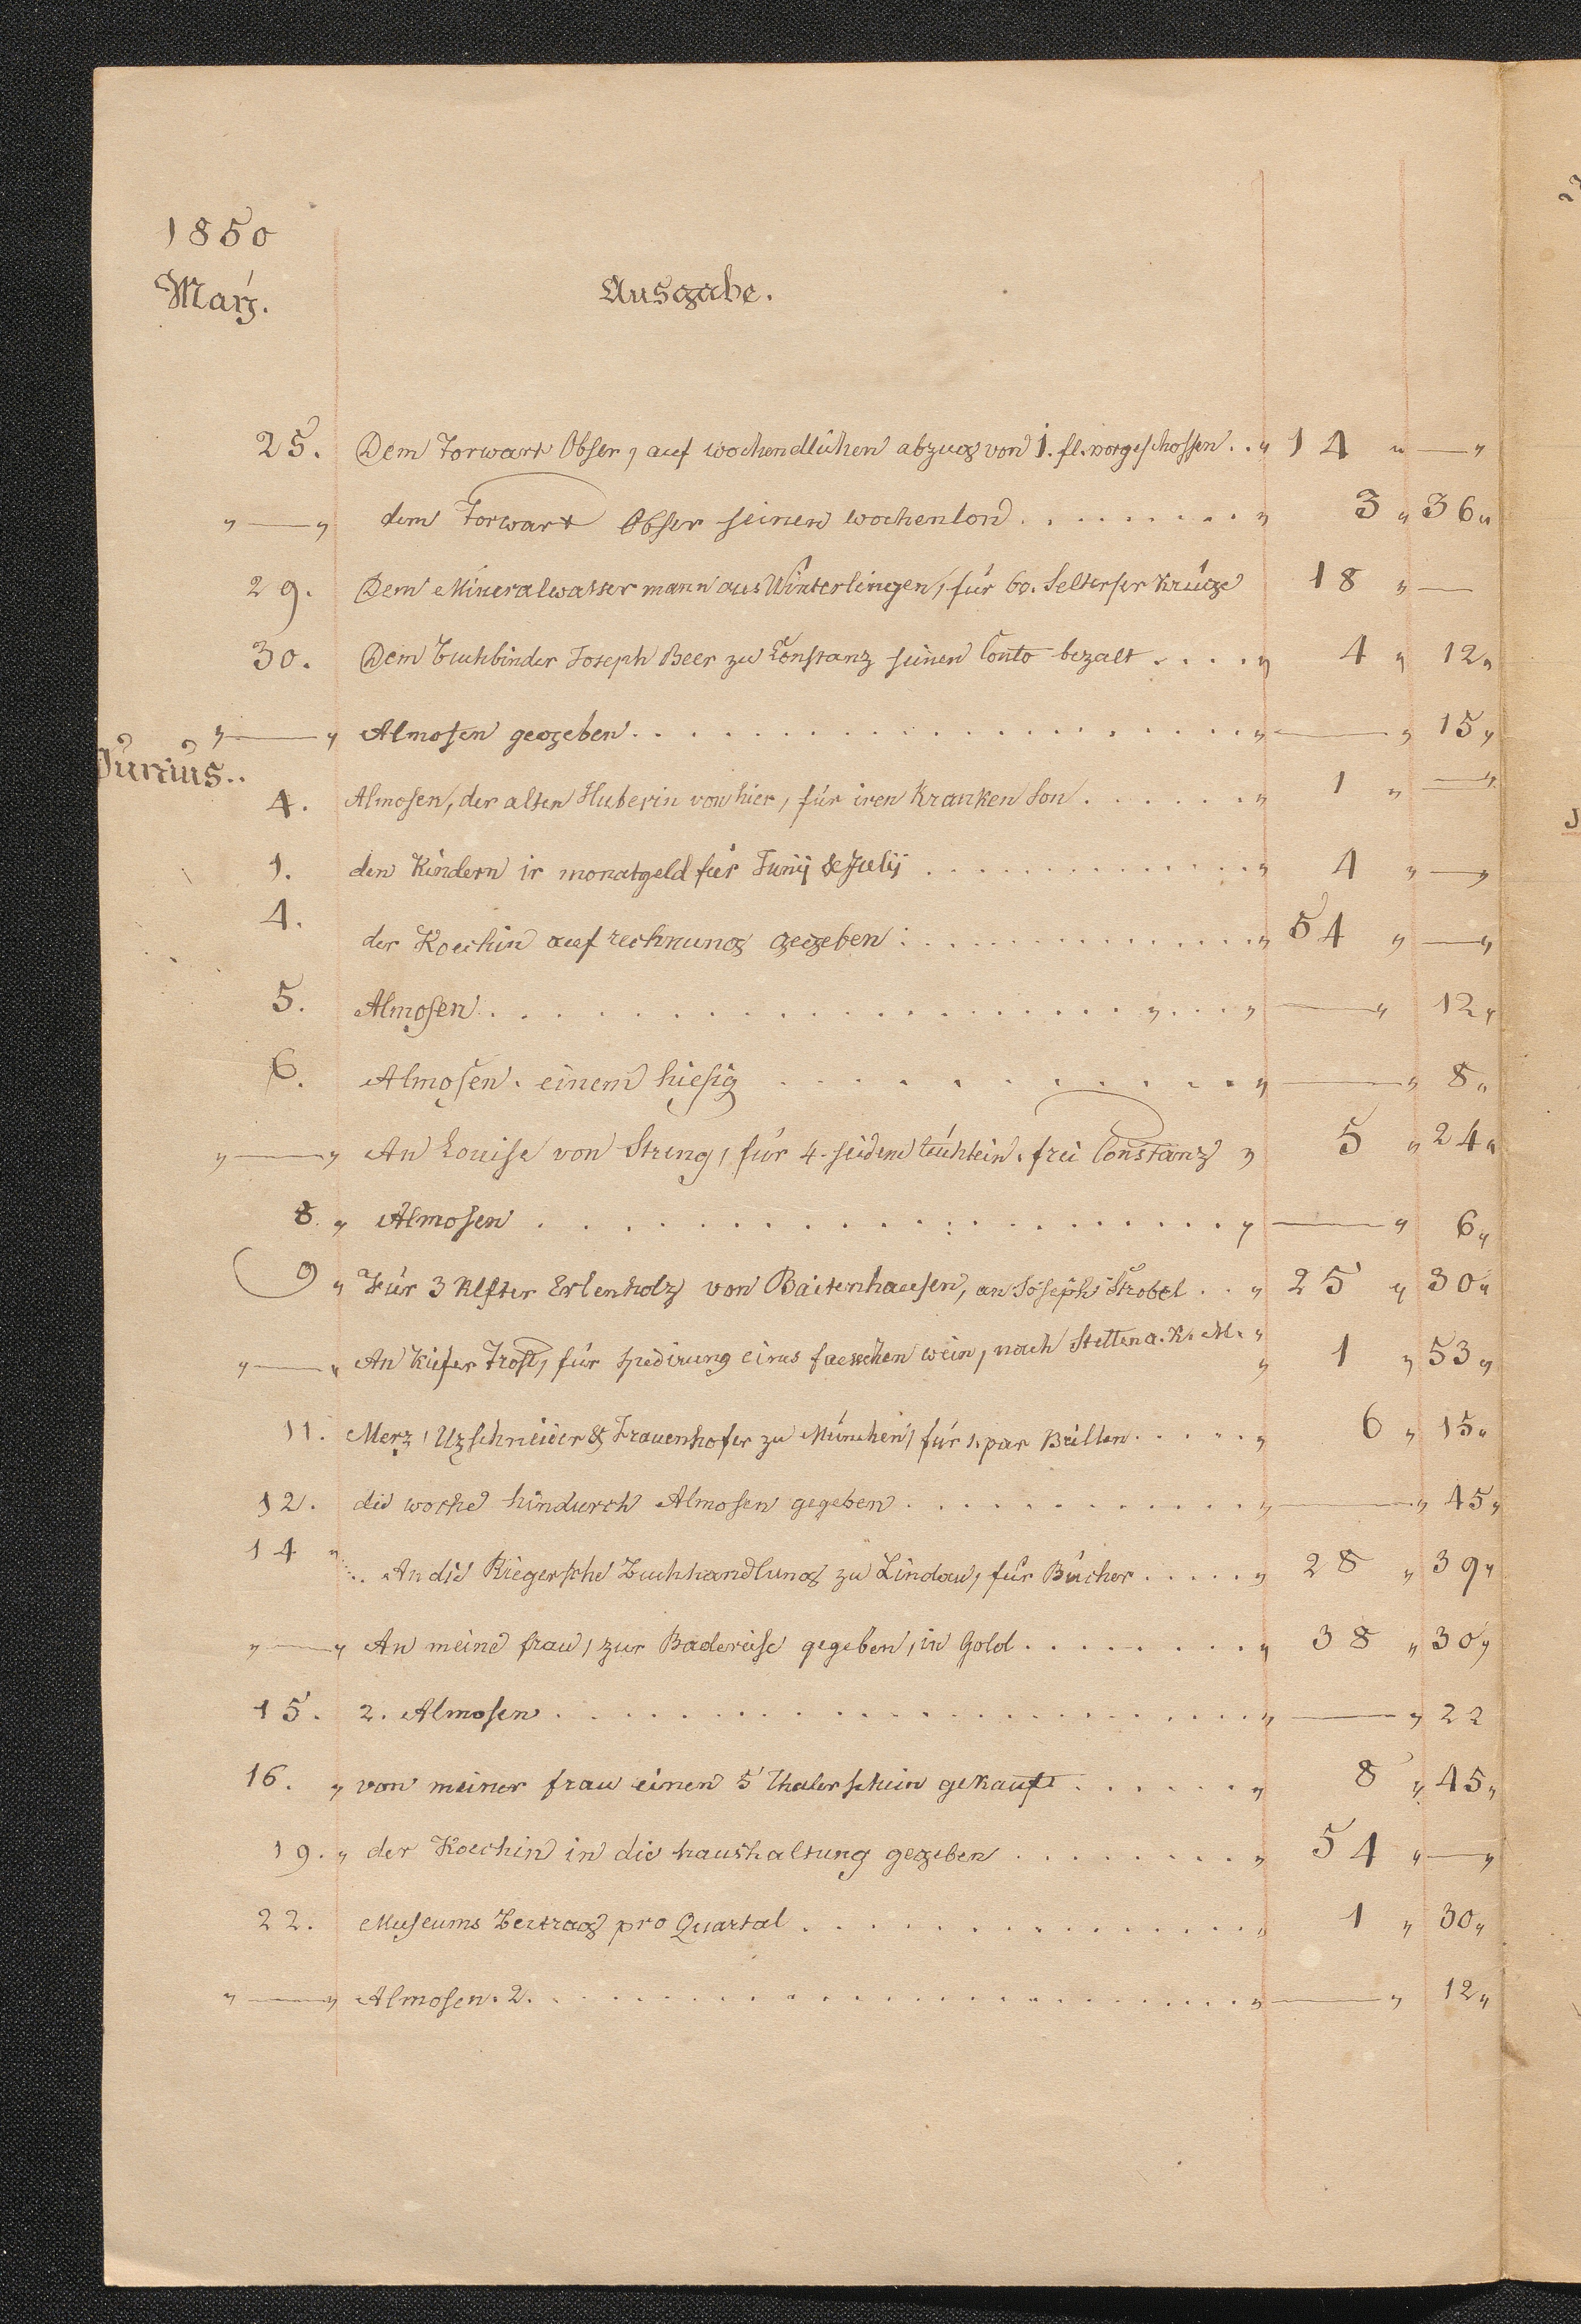 1850
Maÿ.
Ausgabe.
25. Dem Torwart Obser, auf wochendlichen abzug von 1. fl. vorgeschossen . . „ 14 „ — „
„ — „ dem Torwart Obser seinen wochenlon . . . . . . . . . „ 3 „ 36 „
29. Dem Mineralwasser mann aus Winterlingen, für 60. Selterser Krüge 18 „ —
30. Dem buchbinder Joseph Beer zu Constanz seinen Conto bezalt . . . . „ 4 „ 12 „
„ — „ Almosen gegeben . . . . . . . . . . . . . . . . . . „ — „ 15 „
Junius..
4. Almosen, der alten Huberin von hier, für iren Kranken Son . . . . . . „ 1 „ — „
1. den Kindern ir monatgeld für Junij & Julij . . . . . . . . . . . . . „ 4 „ — „
4. der Koechin auf rechnung gegeben : . . . . . . . . . . . . . „ 54 „ — „
5. Almosen . . . . . . . . . . . . . . . . . . . . „ . . . „ — „ 12 „
6. Almosen. einem hiesig . . . . . . . . . . . . . „ — „ 8 „
„ — „ An Louise von Streng, für 4. seidene tüchlein. frei Constanz „ 5 „ 24 „
8. „ Almosen . . . . . . . . . . . . . . . . . . . . „ — „ 6 „
9 „ Für 3 Klfter Erlenholz von Baitenhausen, an Joseph Strobel . . „ 25 „ 30 „
„ — „ An Kiefer Trost, für spedirung eines faesschen wein, nach Stetten a. K. M. „ 1 „ 53 „
11. Merz, Uzschneider & Frauenhofer zu München, für 1. par Brillen . . . . . „ 6 „ 15 „
12. die woche hindurch Almosen gegeben . . . . . . . . . . . . „ — „ 45 „
14 „ . . An die Riegersche Buchhandlung zu Lindau, für Bücher . . . . . „ 28 „ 39 „
„ — „ An meine frau, zur Badereise gegeben, in Gold . . . . . . . . „ 38 „ 30 „
15. 2. Almosen . . . . . . . . . . . . . . . . . . . . . . „ — „ 22
16. „ von meiner frau einen 5 Thalerschein gekauft . . . . . . „ 8 „ 45 „
19. „ der Koechin in die haushaltung gegeben . . . . . . . . „ 54 „ — „
22. Museums Beitrag pro Quartal . . . . . . . . . . . . . . . „ 1 „ 30 „
„ — „ Almosen. 2. . . . . . . . . . . . . . . . . . . . . . . „ — „ 12 „